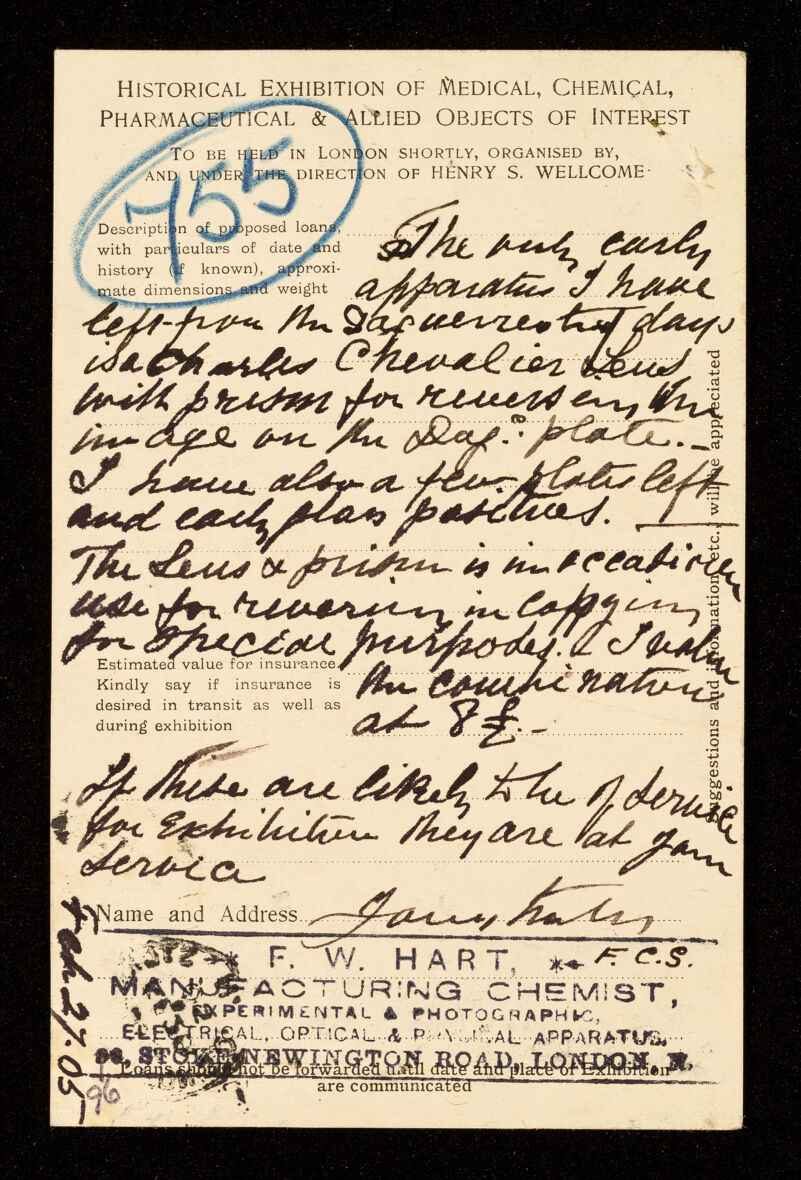 HISTORICAL EXHIBITION OF MEDICAL, CHEMICAL,
PHARMACEUTICAL & ALLIED OBJECTS OF INTEREST
TO BE HELD IN LONDON SHORTLY, ORGANISED BY,
AND UNDER THE DIRECTION OF HENRY S. WELLCOME
755
Description of proposed loans,
with particulars of date and
history (if known), approxi-
mate dimensions and weight
The only early
apparatus I have
left from the Daguerreotype days
is a Charles Chevalier Lens
with prism for reversing the
image on the Dag.e plate. —
I have also a few plates left
and early glass positives. —
The Lens & prism is in occasional
use for reversing in copying
for special purposes. I value
the combination
at 8 £. -
Estimated value for insurance.
Kindly say if insurance is
desired in transit as well as
during exhibition
If these are likely to be of service
for Exhibition they are at your
service
Name and Address
Yours truly
F. W. HART, F.C.S.
MANUFACTURING CHEMIST,
EXPERIMENTAL & PHOTOGRAPHIC,
ELECTRICAL, OPTICAL & PHYSICAL APPARATUS,
STOKE NEWINGTON ROAD, LONDON, N.
Loans should not be forwarded until date and place of Exhibition
are communicated
Feb 27. 05
96
Suggestions and information, etc., will be appreciated